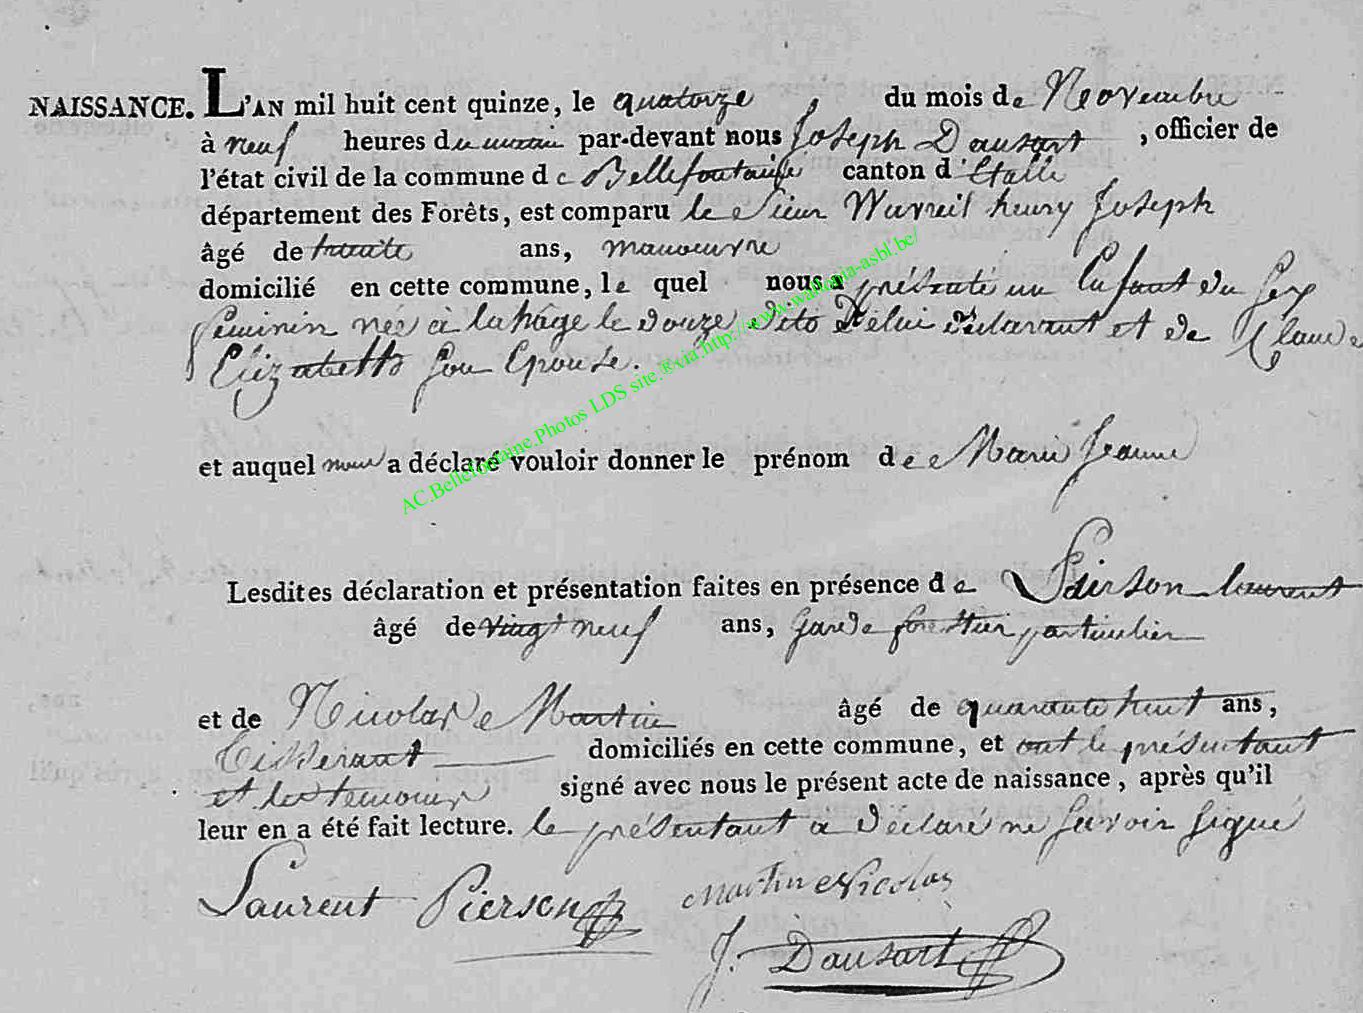 NAISSANCE. L'AN mil huit cent quinze, le quatorze du mois de Novembre
à neuf heures du matin par-devant nous Joseph Dausart , officier de
l'état civil de la commune de Bellefontaine canton d'Etalle
département des Forêts, est comparu le Sieur Wavreil henry Joseph
âgé de trente ans, manoeuvre
domicilié en cette commune, le quel nous a présenté un Enfant du Sex
feminin née à lahâge le douze dito de lui déclarant et de Claude
Elizabette Son Epouse.
et auquel a déclaré vouloir donner le prénom de Marie Jeanne
Lesdites déclaration et présentation faites en présence de Pierson laurent
âgé de vingt neuf ans, garde forestier particulier
et de Nicolas Martin âgé de quarante huit ans,
Tisserant domiciliés en cette commune, et ont le présentant
et les temoins signé avec nous le présent acte de naissance, après qu'il
leur en a été fait lecture. le présentant a déclaré ne savoir signé
Laurent Pierson Martin Nicolas
J. Dausart
AC.Bellefontaine.Photos LDS site.®via.http://www.wallonia-asbl.be/